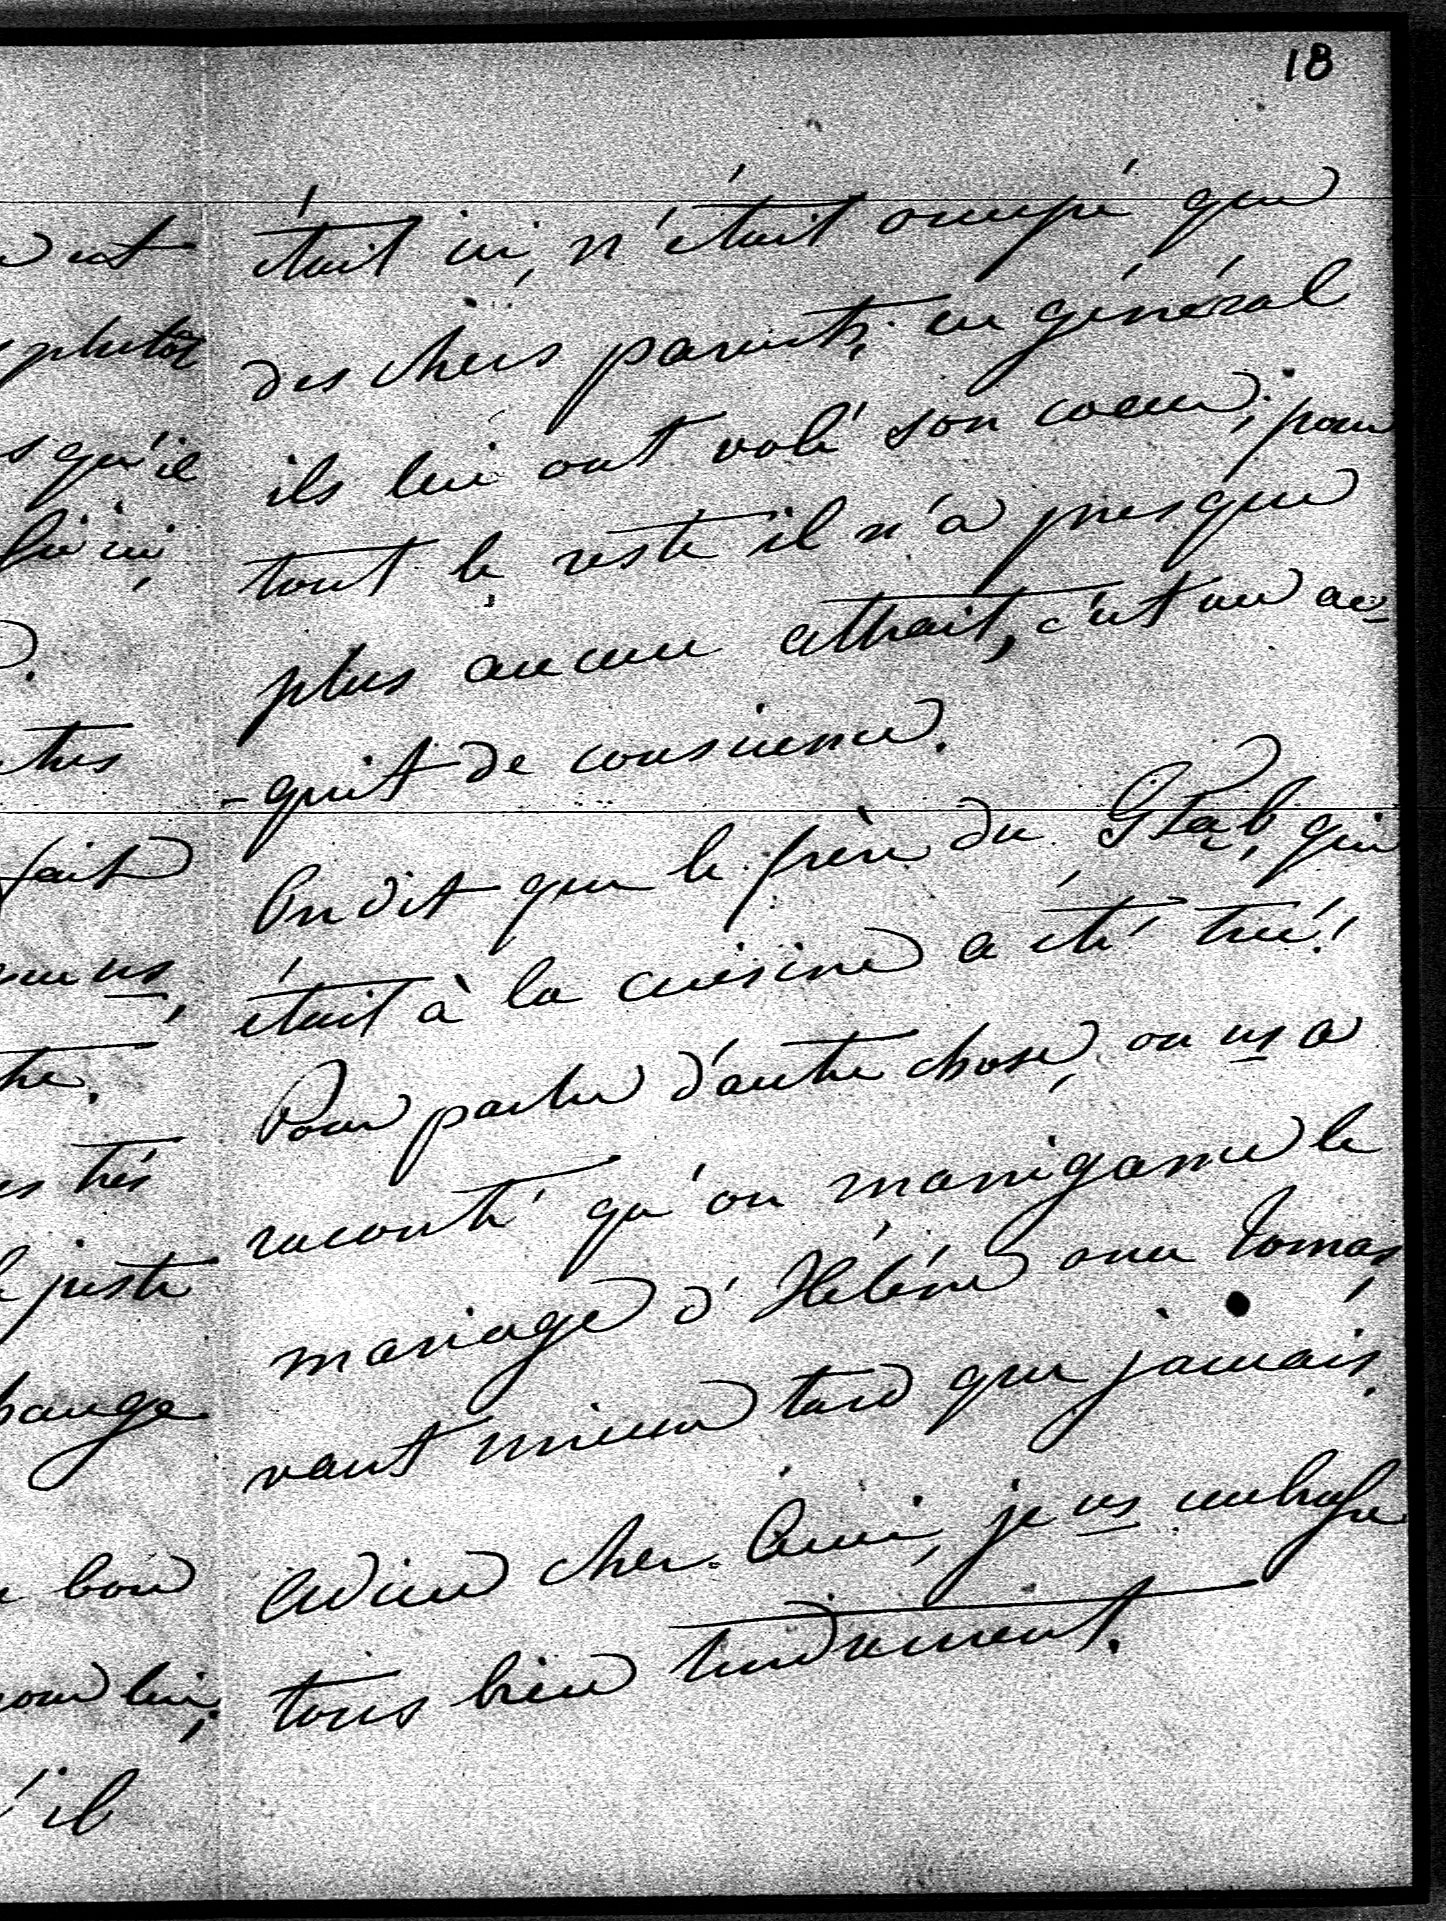 18
était ici, n'était occupé que
des chers parents, en général
ils lui ont volé son coeur; pour
tout le reste il n'a presque
plus aucun attrait, c'est un ac-
-quit de conscience.
On dit que le frère du qui
était à la cuisine a été tué!
Pour parler d'autre chose, on vs a
raconté qu'on manigance le
mariage d'Hélène avec Tomas,
vaut mieux tard que jamais.
Adieu cher Ami, je vs embrasse
tous bien tendrement.
est
plutôt
s qu'il
ici,
tres
fait
vs,
tre.
es très
juste
hange
bon
pour lui;
'il